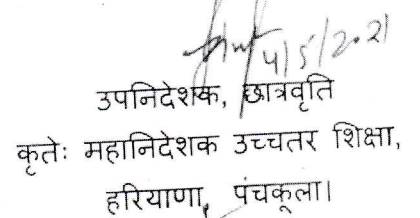 4/5/2021
उपनिदेशक, छात्रवृति
कृतेः महानिदेशक उच्चतर शिक्षा,
हरियाणा, पंचकूला।